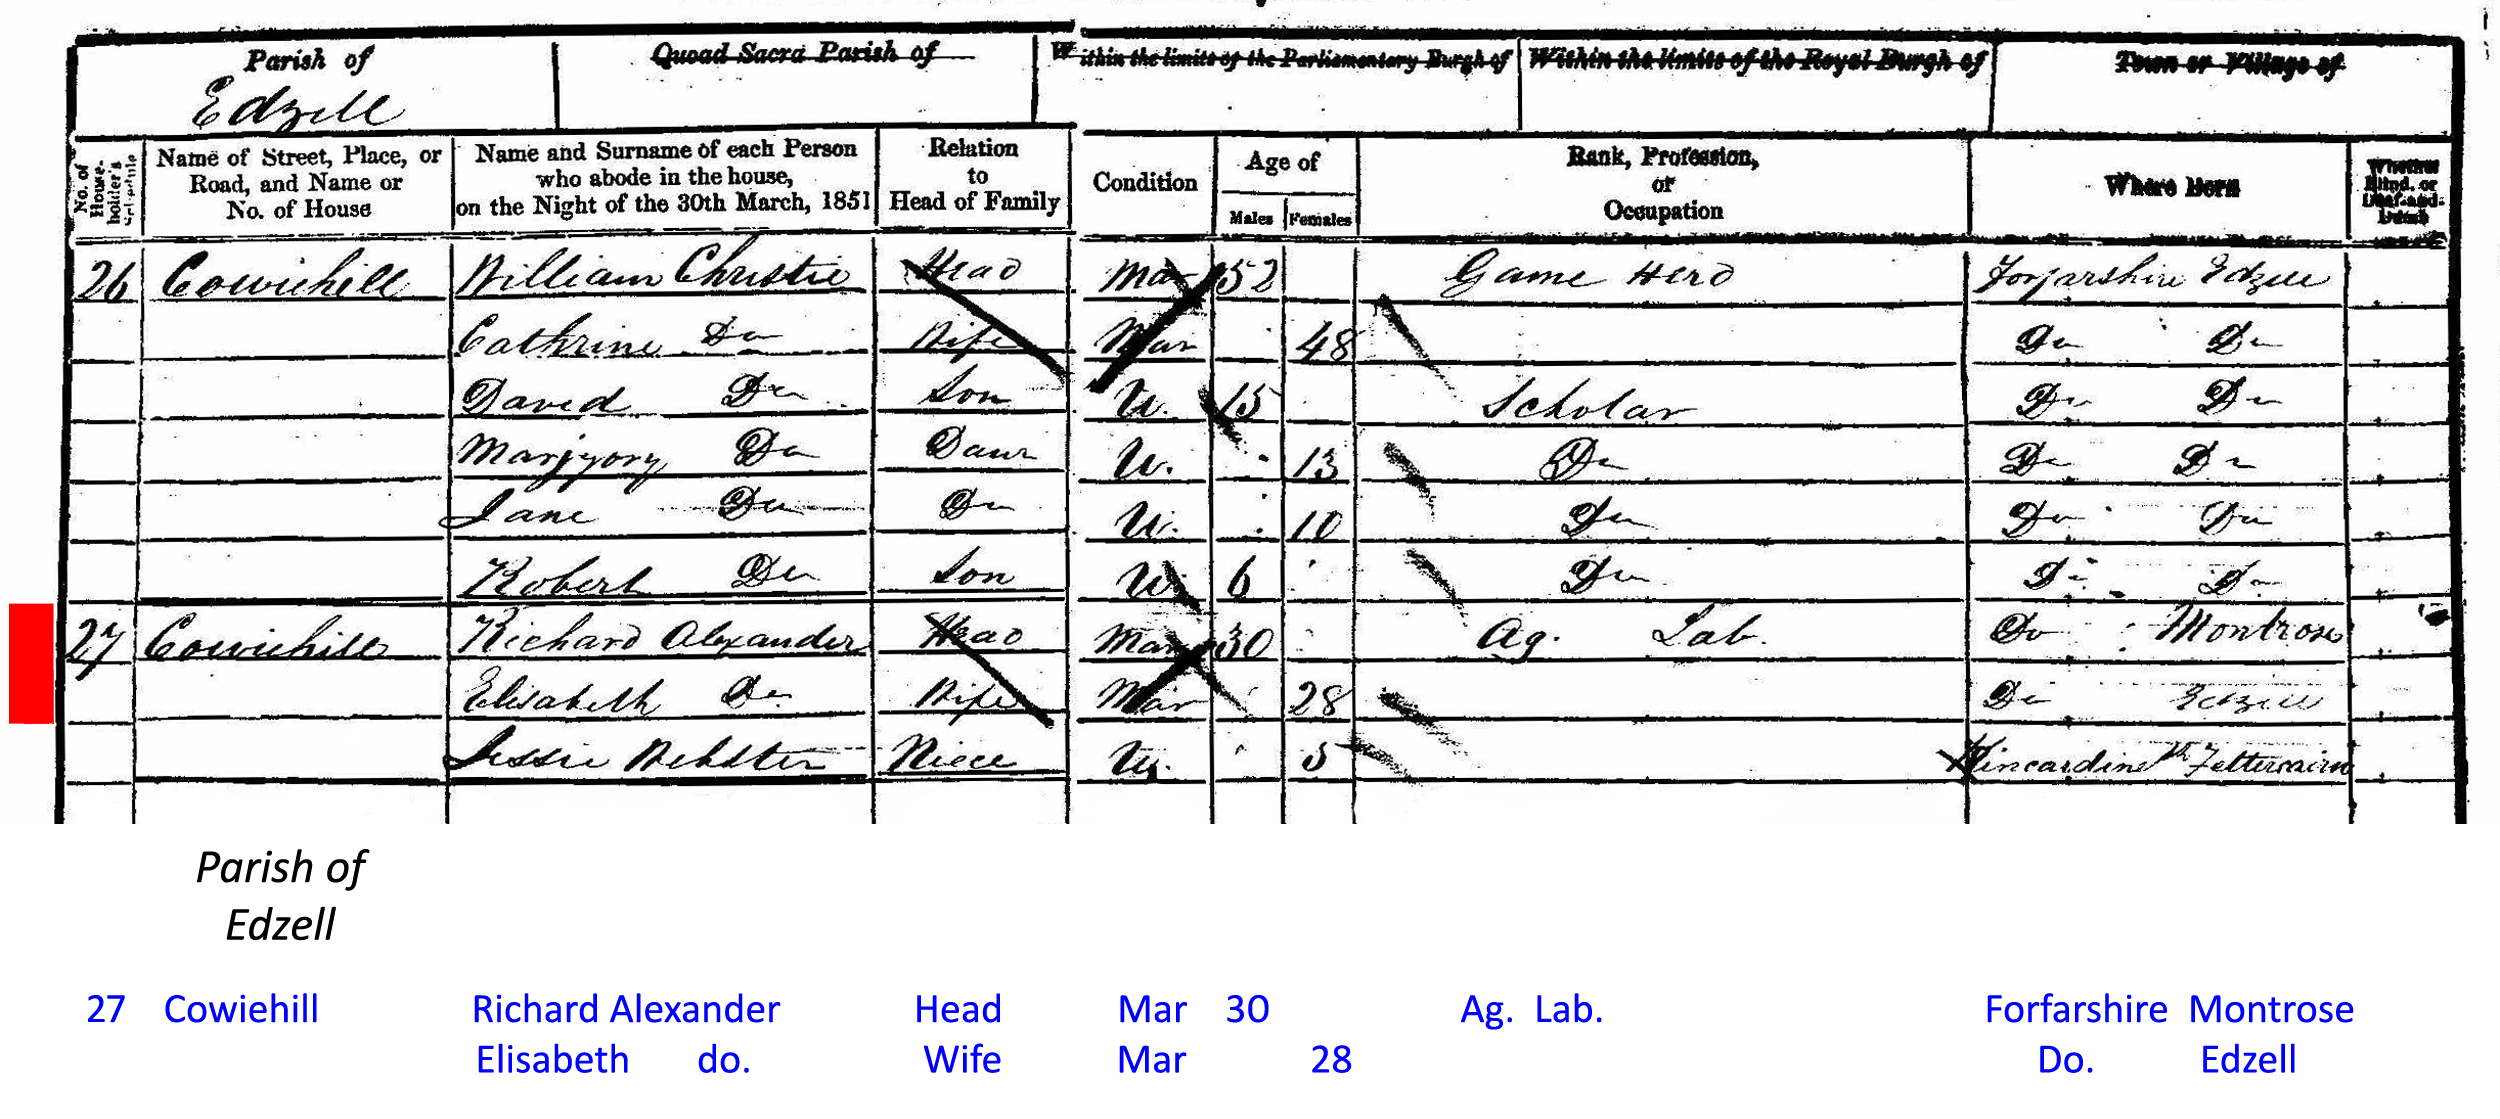 Parish of
Edzell
Quoad Sacra Parish of
Within the limits of the Parliamentary Burgh of
Within the limits of the Royal Burgh of
Town or Village of
No. of House-holder's Schedule
Name of Street, Place, or Road, and Name or No. of House
Name and Surname of each Person who abode in the house, on the Night of the 30th March, 1851
Relation to Head of Family
Condition
Age of
Males Females
Rank, Profession, or Occupation
Where Born
Whether Blind, or Deaf-and-Dumb
26 Cowiehill William Christie Head Mar 52 Game Herd Forfarshire Edzell
Cathrine Do Wife Mar 48 Do Do
David Do Son U. 15 Scholar Do Do
Marjyory Do Daur U. 13 Do Do Do
Jane Do Do U. 10 Do Do Do
Robert Do Son U 6 Do Do Do
27 Cowiehill Richard Alexander Head Mar 30 Ag. Lab. Do Montrose
Elisabeth Do Wife Mar 28 Do Edzell
Jessie Webster Niece U. 5 Kincardine Fettercairn
Parish of
Edzell
27 Cowiehill Richard Alexander Head Mar 30 Ag. Lab. Forfarshire Montrose
Elisabeth do. Wife Mar 28 Do. Edzell